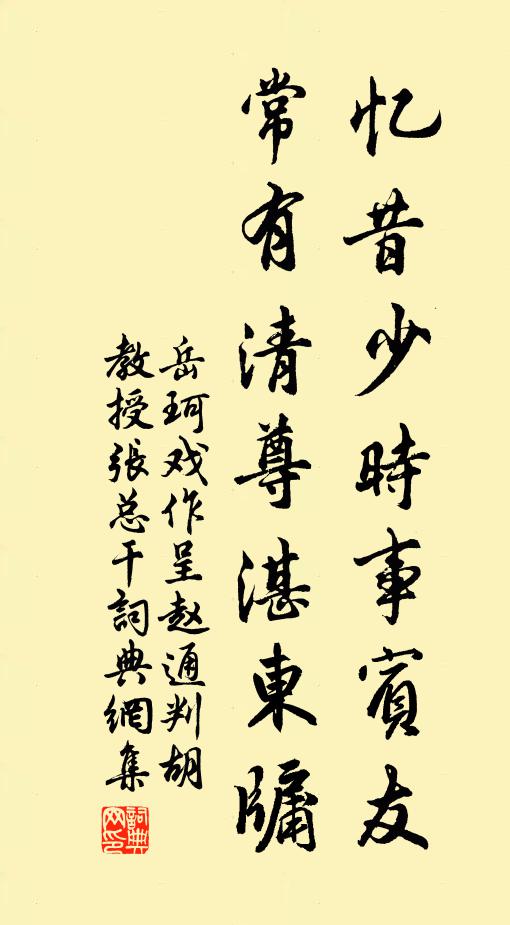 忆昔少時事賓友
常有清尊湛東牗
岳珂戏作呈赵通判胡
教授張总干詞典網集
詞典
网印